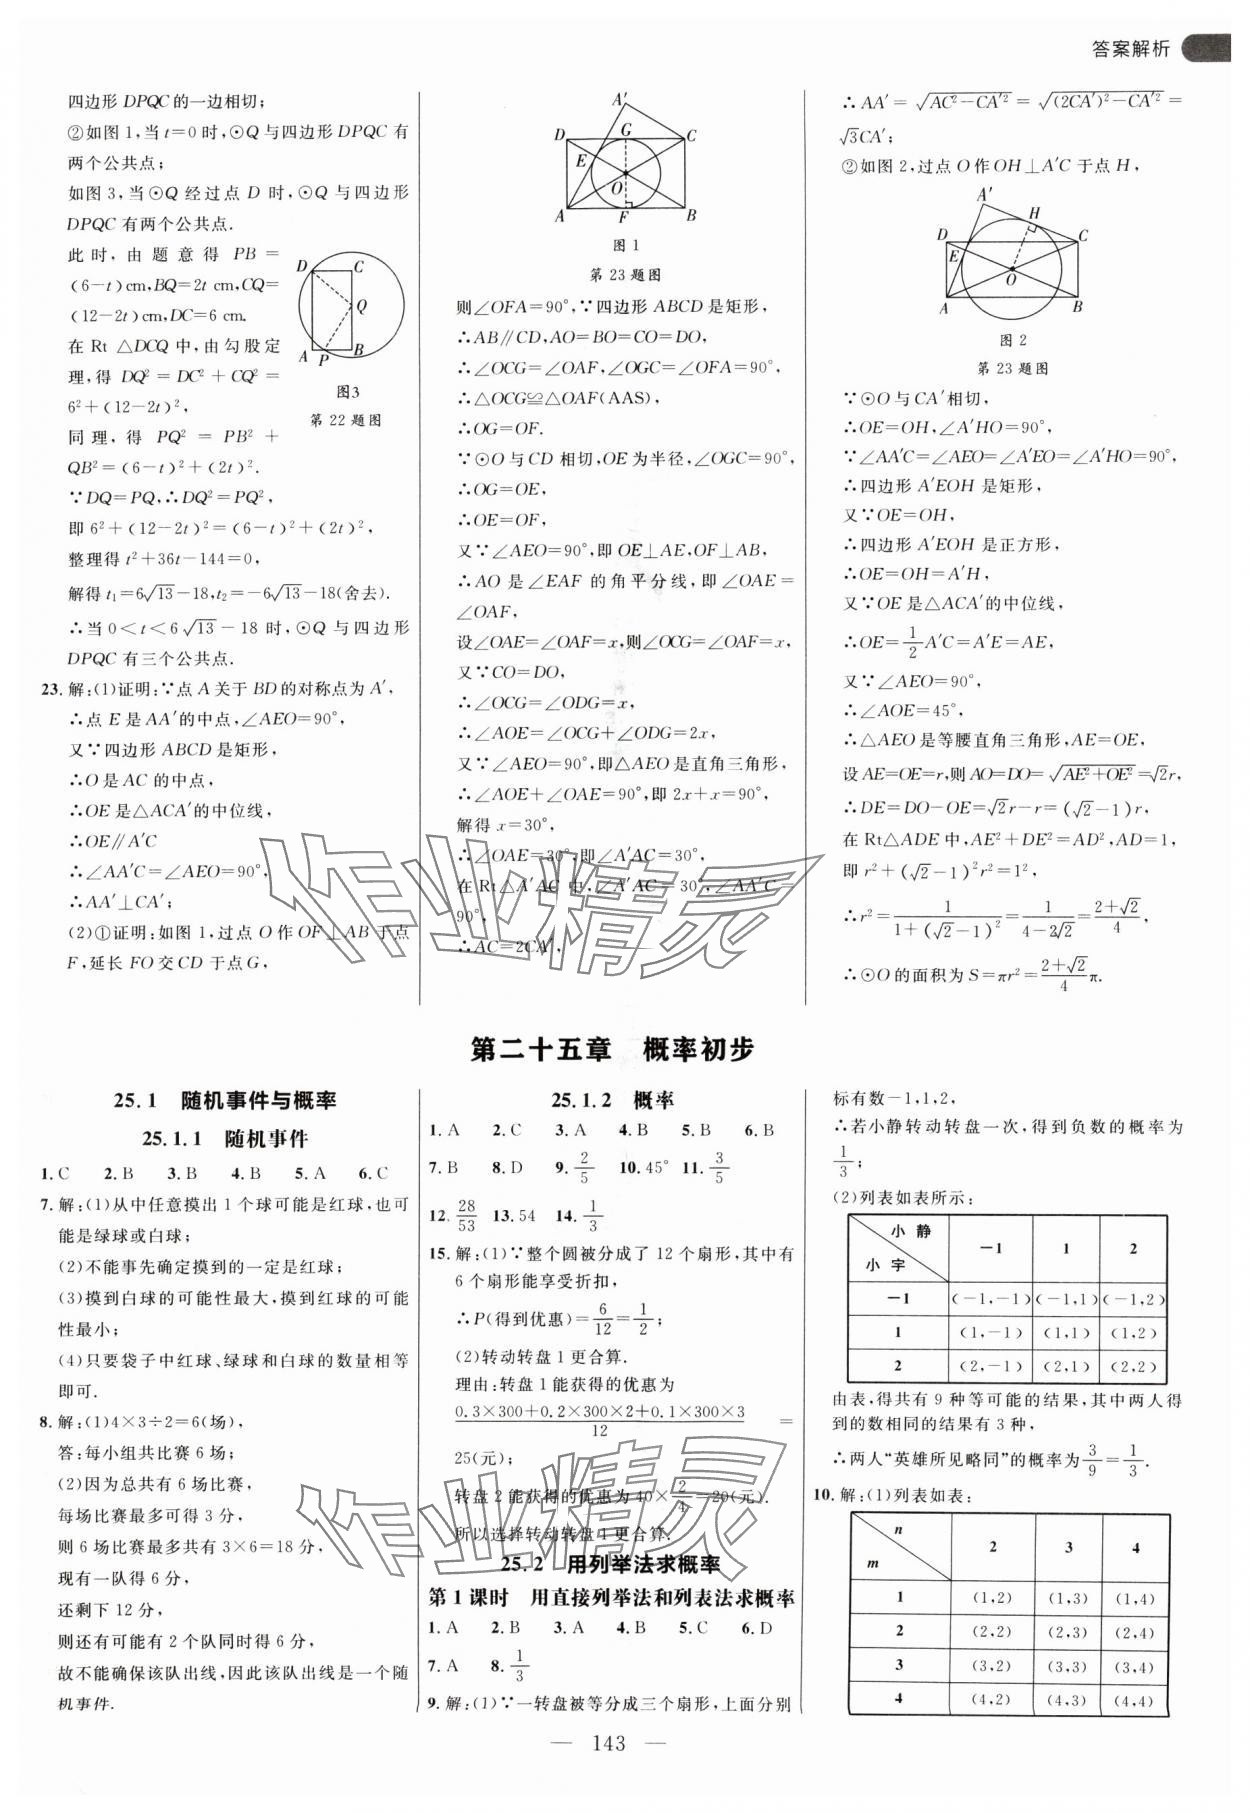 答案解析
四边形DPQC的一边相切;
②如图1,当t=0时,⊙Q与四边形DPQC有
两个公共点;
如图3,当⊙Q经过点D时,⊙Q与四边形
DPQC有两个公共点.
此时,由题意得PB=
(6-t)cm,BQ=2t cm,CQ=
(12-2t)cm,DC=6 cm.
在Rt△DCQ中,由勾股定
理,得DQ²=DC²+CQ²=
6²+(12-2t)²,
同理,得PQ²=PB²+
QB²=(6-t)²+(2t)².
∵DQ=PQ,∴DQ²=PQ²,
即6²+(12-2t)²=(6-t)²+(2t)²,
整理得t²+36t-144=0,
解得t₁=6√13-18,t₂=-6√13-18(舍去).
∴当0<t<6√13-18时,⊙Q与四边形
DPQC有三个公共点.
D C Q A P B
图3
第22题图
23.解:(1)证明:∵点A关于BD的对称点为A′,
∴点E是AA′的中点,∠AEO=90°,
又∵四边形ABCD是矩形,
∴O是AC的中点,
∴OE是△ACA′的中位线,
∴OE∥A′C
∴∠AA′C=∠AEO=90°,
∴AA′⊥CA′;
(2)①证明:如图1,过点O作OF⊥AB于点
F,延长FO交CD于点G,
A′ D G C E O A F B
图1
第23题图
则∠OFA=90°,∵四边形ABCD是矩形,
∴AB∥CD,AO=BO=CO=DO,
∴∠OCG=∠OAF,∠OGC=∠OFA=90°,
∴△OCG≌△OAF(AAS),
∴OG=OF.
∵⊙O与CD相切,OE为半径,∠OGC=90°,
∴OG=OE,
∴OE=OF,
又∵∠AEO=90°,即OE⊥AE,OF⊥AB,
∴AO是∠EAF的角平分线,即∠OAE=
∠OAF,
设∠OAE=∠OAF=x,则∠OCG=∠OAF=x,
又∵CO=DO,
∴∠OCG=∠ODG=x,
∴∠AOE=∠OCG+∠ODG=2x,
又∵∠AEO=90°,即△AEO是直角三角形,
∴∠AOE+∠OAE=90°,即2x+x=90°,
解得x=30°,
∴∠OAE=30°,即∠A′AC=30°,
在Rt△A′AC中,∠A′AC=30°,∠AA′C=
90°,
∴AC=2CA′,
∴AA′=√(AC²-CA′²)=√((2CA′)²-CA′²)=
√3CA′;
②如图2,过点O作OH⊥A′C于点H,
A′ H D C E O A B
图2
第23题图
∵⊙O与CA′相切,
∴OE=OH,∠A′HO=90°,
∵∠AA′C=∠AEO=∠A′EO=∠A′HO=90°,
∴四边形A′EOH是矩形,
又∵OE=OH,
∴四边形A′EOH是正方形,
∴OE=OH=A′H,
又∵OE是△ACA′的中位线,
∴OE=1/2A′C=A′E=AE,
又∵∠AEO=90°,
∴∠AOE=45°,
∴△AEO是等腰直角三角形,AE=OE,
设AE=OE=r,则AO=DO=√(AE²+OE²)=√2r,
∴DE=DO-OE=√2r-r=(√2-1)r,
在Rt△ADE中,AE²+DE²=AD²,AD=1,
即r²+(√2-1)²r²=1²,
∴r²=1/(1+(√2-1)²)=1/(4-2√2)=(2+√2)/4,
∴⊙O的面积为S=πr²=(2+√2)/4π.
第二十五章 概率初步
25.1 随机事件与概率
25.1.1 随机事件
1.C 2.B 3.B 4.B 5.A 6.C
7.解:(1)从中任意摸出1个球可能是红球,也可
能是绿球或白球;
(2)不能事先确定摸到的一定是红球;
(3)摸到白球的可能性最大,摸到红球的可能
性最小;
(4)只要袋子中红球、绿球和白球的数量相等
即可.
8.解:(1)4×3÷2=6(场),
答:每小组共比赛6场;
(2)因为总共有6场比赛,
每场比赛最多可得3分,
则6场比赛最多共有3×6=18分,
现有一队得6分,
还剩下12分,
则还有可能有2个队同时得6分,
故不能确保该队出线,因此该队出线是一个随
机事件.
25.1.2 概率
1.A 2.C 3.A 4.B 5.B 6.B
7.B 8.D 9.2/5 10.45° 11.3/5
12.28/53 13.54 14.1/3
15.解:(1)∵整个圆被分成了12个扇形,其中有
6个扇形能享受折扣,
∴P(得到优惠)=6/12=1/2;
(2)转动转盘1更合算.
理由:转盘1能获得的优惠为
(0.3×300+0.2×300×2+0.1×300×3)/12=
25(元);
转盘2能获得的优惠为40×2/4=20(元).
所以选择转动转盘1更合算.
25.2 用列举法求概率
第1课时 用直接列举法和列表法求概率
1.A 2.B 3.A 4.B 5.C 6.D
7.A 8.1/3
9.解:(1)∵一转盘被等分成三个扇形,上面分别
标有数-1,1,2,
∴若小静转动转盘一次,得到负数的概率为
1/3;
(2)列表如表所示:
小静 小宇 -1 1 2
-1 (-1,-1) (-1,1) (-1,2)
1 (1,-1) (1,1) (1,2)
2 (2,-1) (2,1) (2,2)
由表,得共有9种等可能的结果,其中两人得
到的数相同的结果有3种,
∴两人“英雄所见略同”的概率为3/9=1/3.
10.解:(1)列表如表:
n m 2 3 4
1 (1,2) (1,3) (1,4)
2 (2,2) (2,3) (2,4)
3 (3,2) (3,3) (3,4)
4 (4,2) (4,3) (4,4)
— 143 —
作业精灵
作业精灵